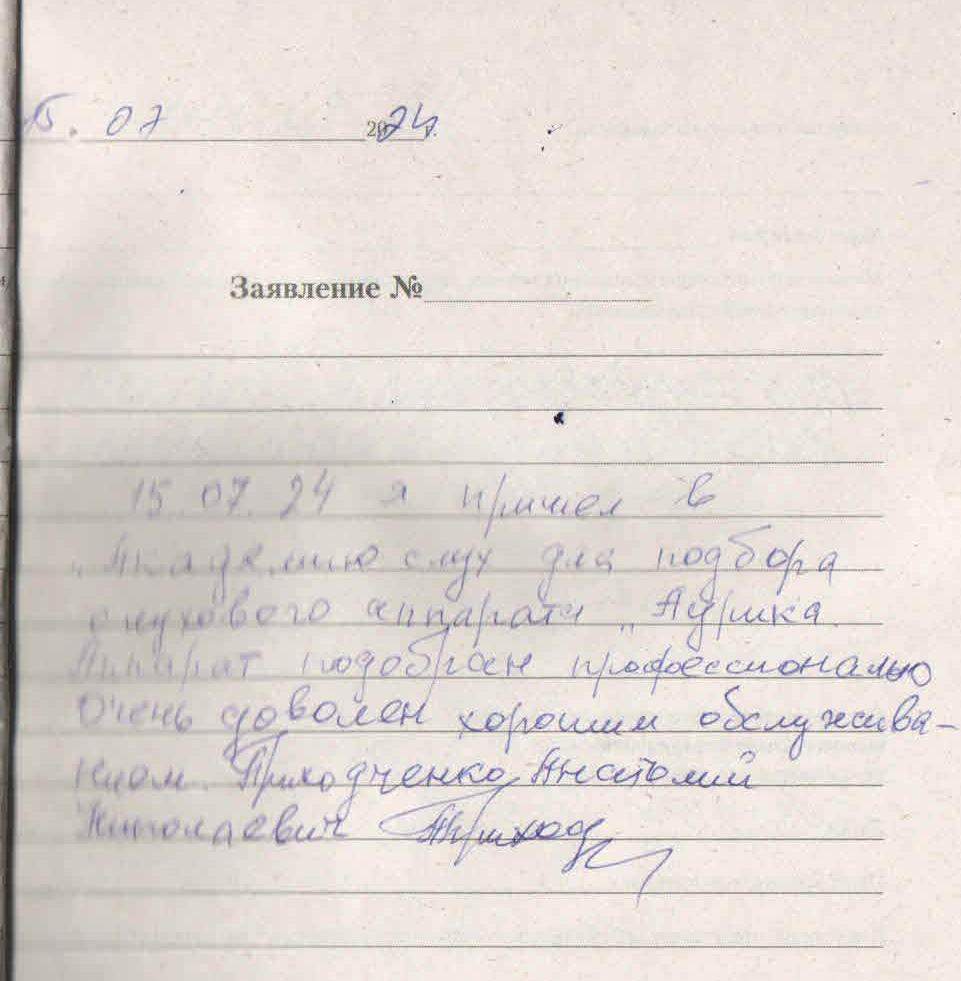 15. 07 2024 г.
Заявление №
15.07.24 я пришел в
„Академию слух для подбора
слухового аппарата „Аурика.
Аппарат подобран профессионально
Очень доволен хорошим обслужива-
нием. Приходченко Анатолий
Николаевич Приход